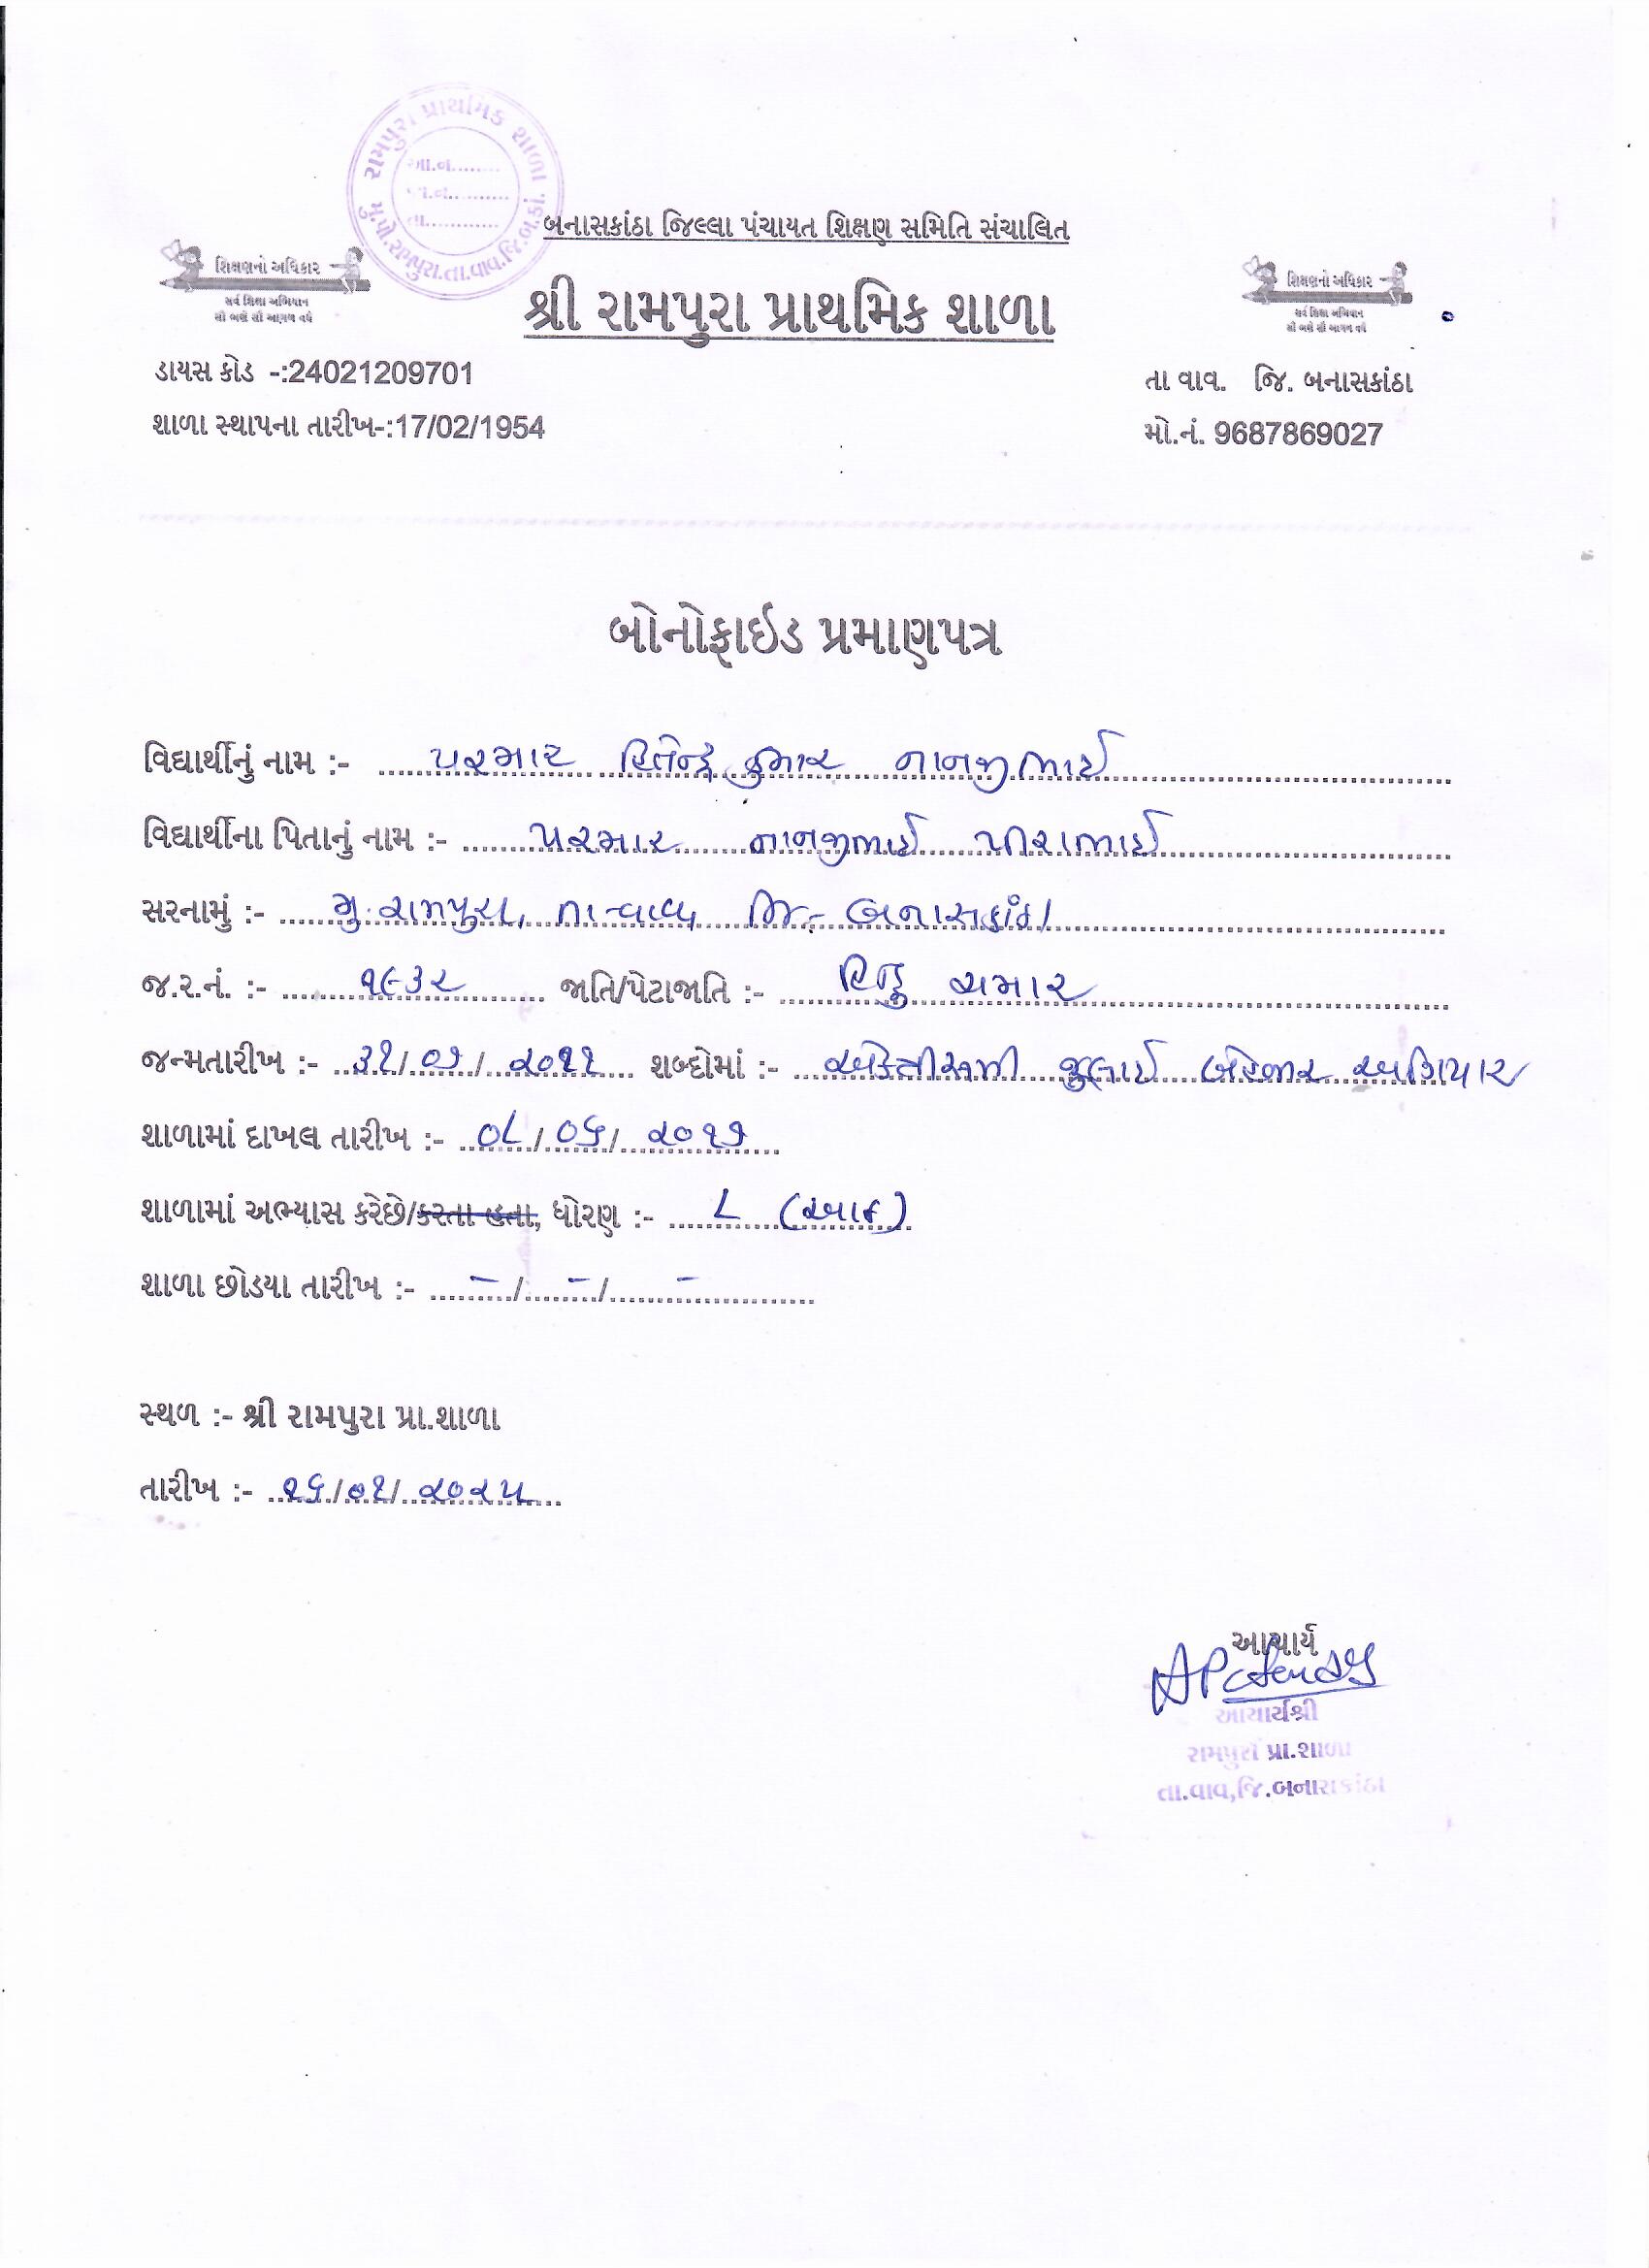 રામપુરા પ્રાથમિક શાળા
મુ.પો.રામપુરા.તા.વાવ.જિ.બ.કાં.
આ.નં........
તા............
બનાસકાંઠા જિલ્લા પંચાયત શિક્ષણ સમિતિ સંચાલિત
શિક્ષણનો અધિકાર
સર્વ શિક્ષા અભિયાન
સૌ ભણે સૌ આગળ વધે
શ્રી રામપુરા પ્રાથમિક શાળા
શિક્ષણનો અધિકાર
સર્વ શિક્ષા અભિયાન
સૌ ભણે સૌ આગળ વધે
ડાયસ કોડ -:24021209701
તા વાવ. જિ. બનાસકાંઠા
શાળા સ્થાપના તારીખ-:17/02/1954
મો.નં. 9687869027
બોનોફાઇડ પ્રમાણપત્ર
વિદ્યાર્થીનું નામ :- પરમાર હિતેન્દ્રકુમાર નાનજીભાઈ
વિદ્યાર્થીના પિતાનું નામ :- પરમાર નાનજીભાઈ પીરાભાઈ
સરનામું :- મુ.રામપુરા, તા-વાવ, જિ,- બનાસકાંઠા
જ.ર.નં. :- ૧૯૩૨ જાતિ/પેટાજાતિ :- હિન્દુ ચમાર
જન્મતારીખ :- ૩૧/૦૭/૨૦૧૧ શબ્દોમાં :- એકત્રીસમી જુલાઈ બેહજાર અગિયાર
શાળામાં દાખલ તારીખ :- ૦૮/૦૬/૨૦૧૭
શાળામાં અભ્યાસ કરેછે/કરતા હતા, ધોરણ :- ૮ (આઠ)
શાળા છોડયા તારીખ :- –/–/–
સ્થળ :- શ્રી રામપુરા પ્રા.શાળા
તારીખ :- ૧૬/૦૧/૨૦૨૫
આચાર્ય
આચાર્યશ્રી
રામપુરા પ્રા.શાળા
તા.વાવ,જિ.બનાસકાંઠા